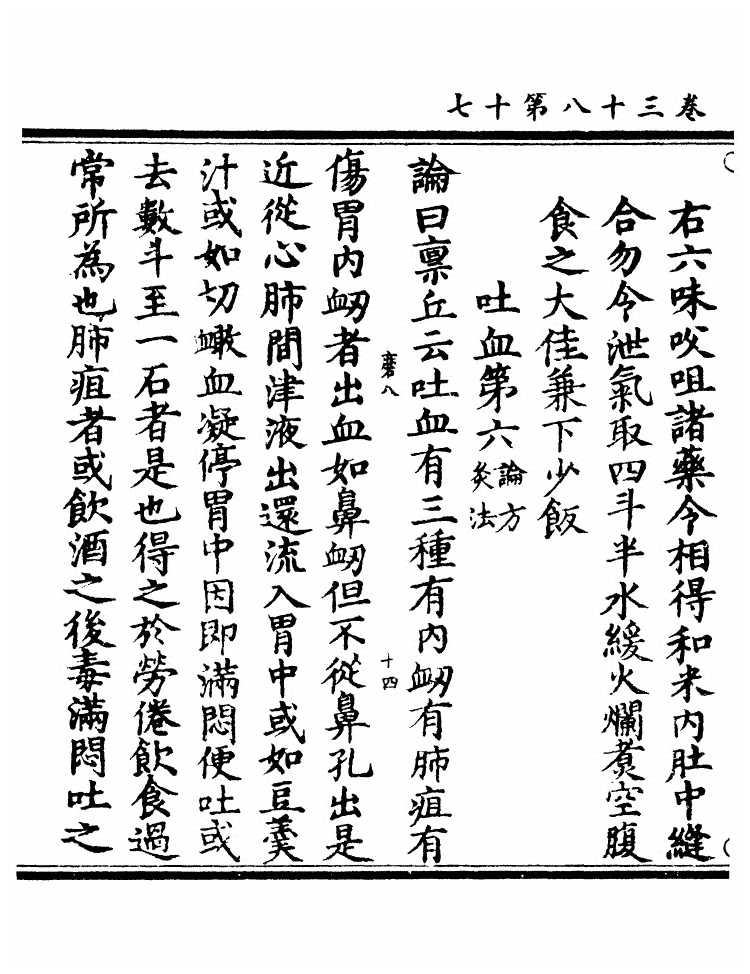 卷三十八第十七
右六味㕮咀諸藥令相得和米內肚中縫
合勿令泄氣取四斗半水緩火爛煑空腹
食之大佳兼下少飯
吐血第六 論方灸法
論曰禀丘云吐血有三種有內衂有肺疽有
磨八 十四
傷胃內衂者出血如鼻衂但不從鼻孔出是
近從心肺間津液出還流入胃中或如豆羹
汁或如切䘓血凝停胃中因即滿悶便吐或
去數斗至一石者是也得之於勞倦飲食過
常所為也肺疽者或飲酒之後毒滿悶吐之